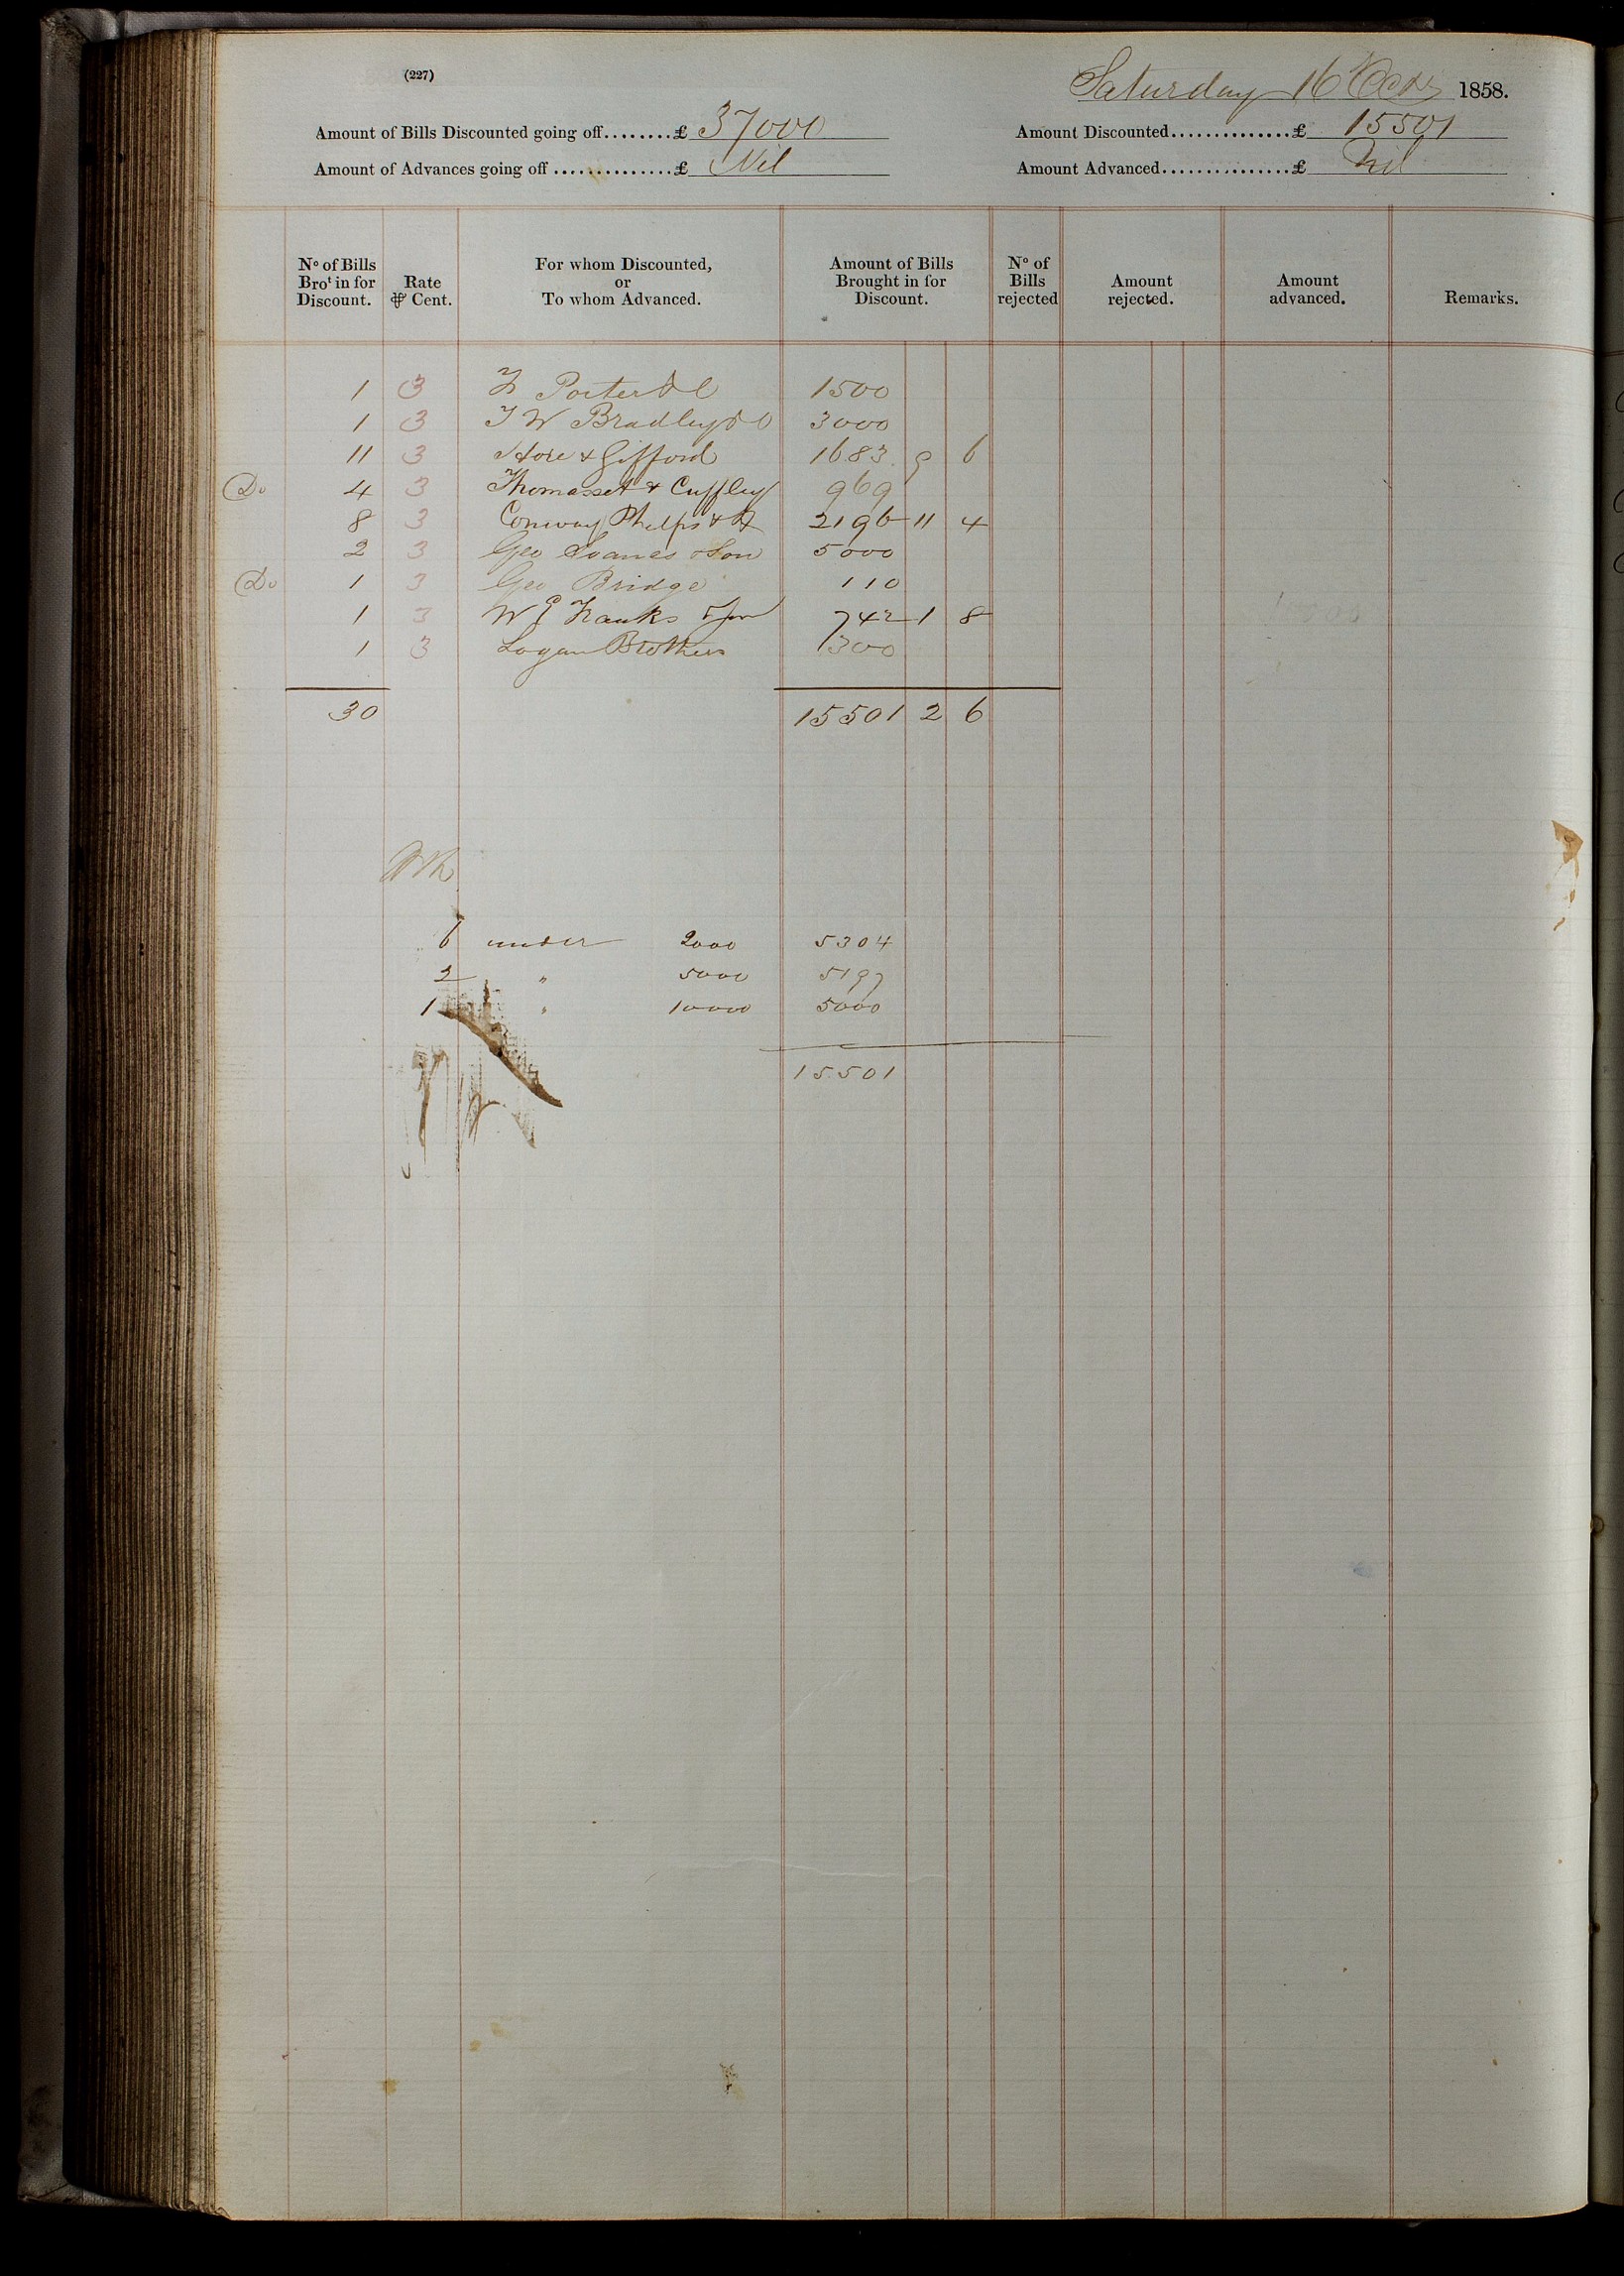 (227)
Saturday 16 Octr 1858.
Amount of Bills Discounted going off........£ 37000
Amount Discounted..............£ 15501
Amount of Advances going off ..............£ Nil
Amount Advanced...............£ Nil
No of Bills Brot in for Discount.
Rate ⅌ Cent.
For whom Discounted, or To whom Advanced.
Amount of Bills Brought in for Discount.
No of Bills rejected
Amount rejected.
Amount advanced.
Remarks.
1 3 Porter & C 1500
1 3 T W Bradley & C 3000
11 3 Hore & Gifford 1683 9 6
Do 4 3 Thomasset & Cuffley 969
8 3 Conway Phelps & 2196 11 4
2 3 Geo Soanes & Son 5000
Do 1 3 Geo Bridge 110
1 3 W E Franks & Son 742 1 8
1 3 Logan Brothers 300
30 15501 2 6
6 under 2000 5304
2 " 5000 5197
1 " 10000 5000
15501